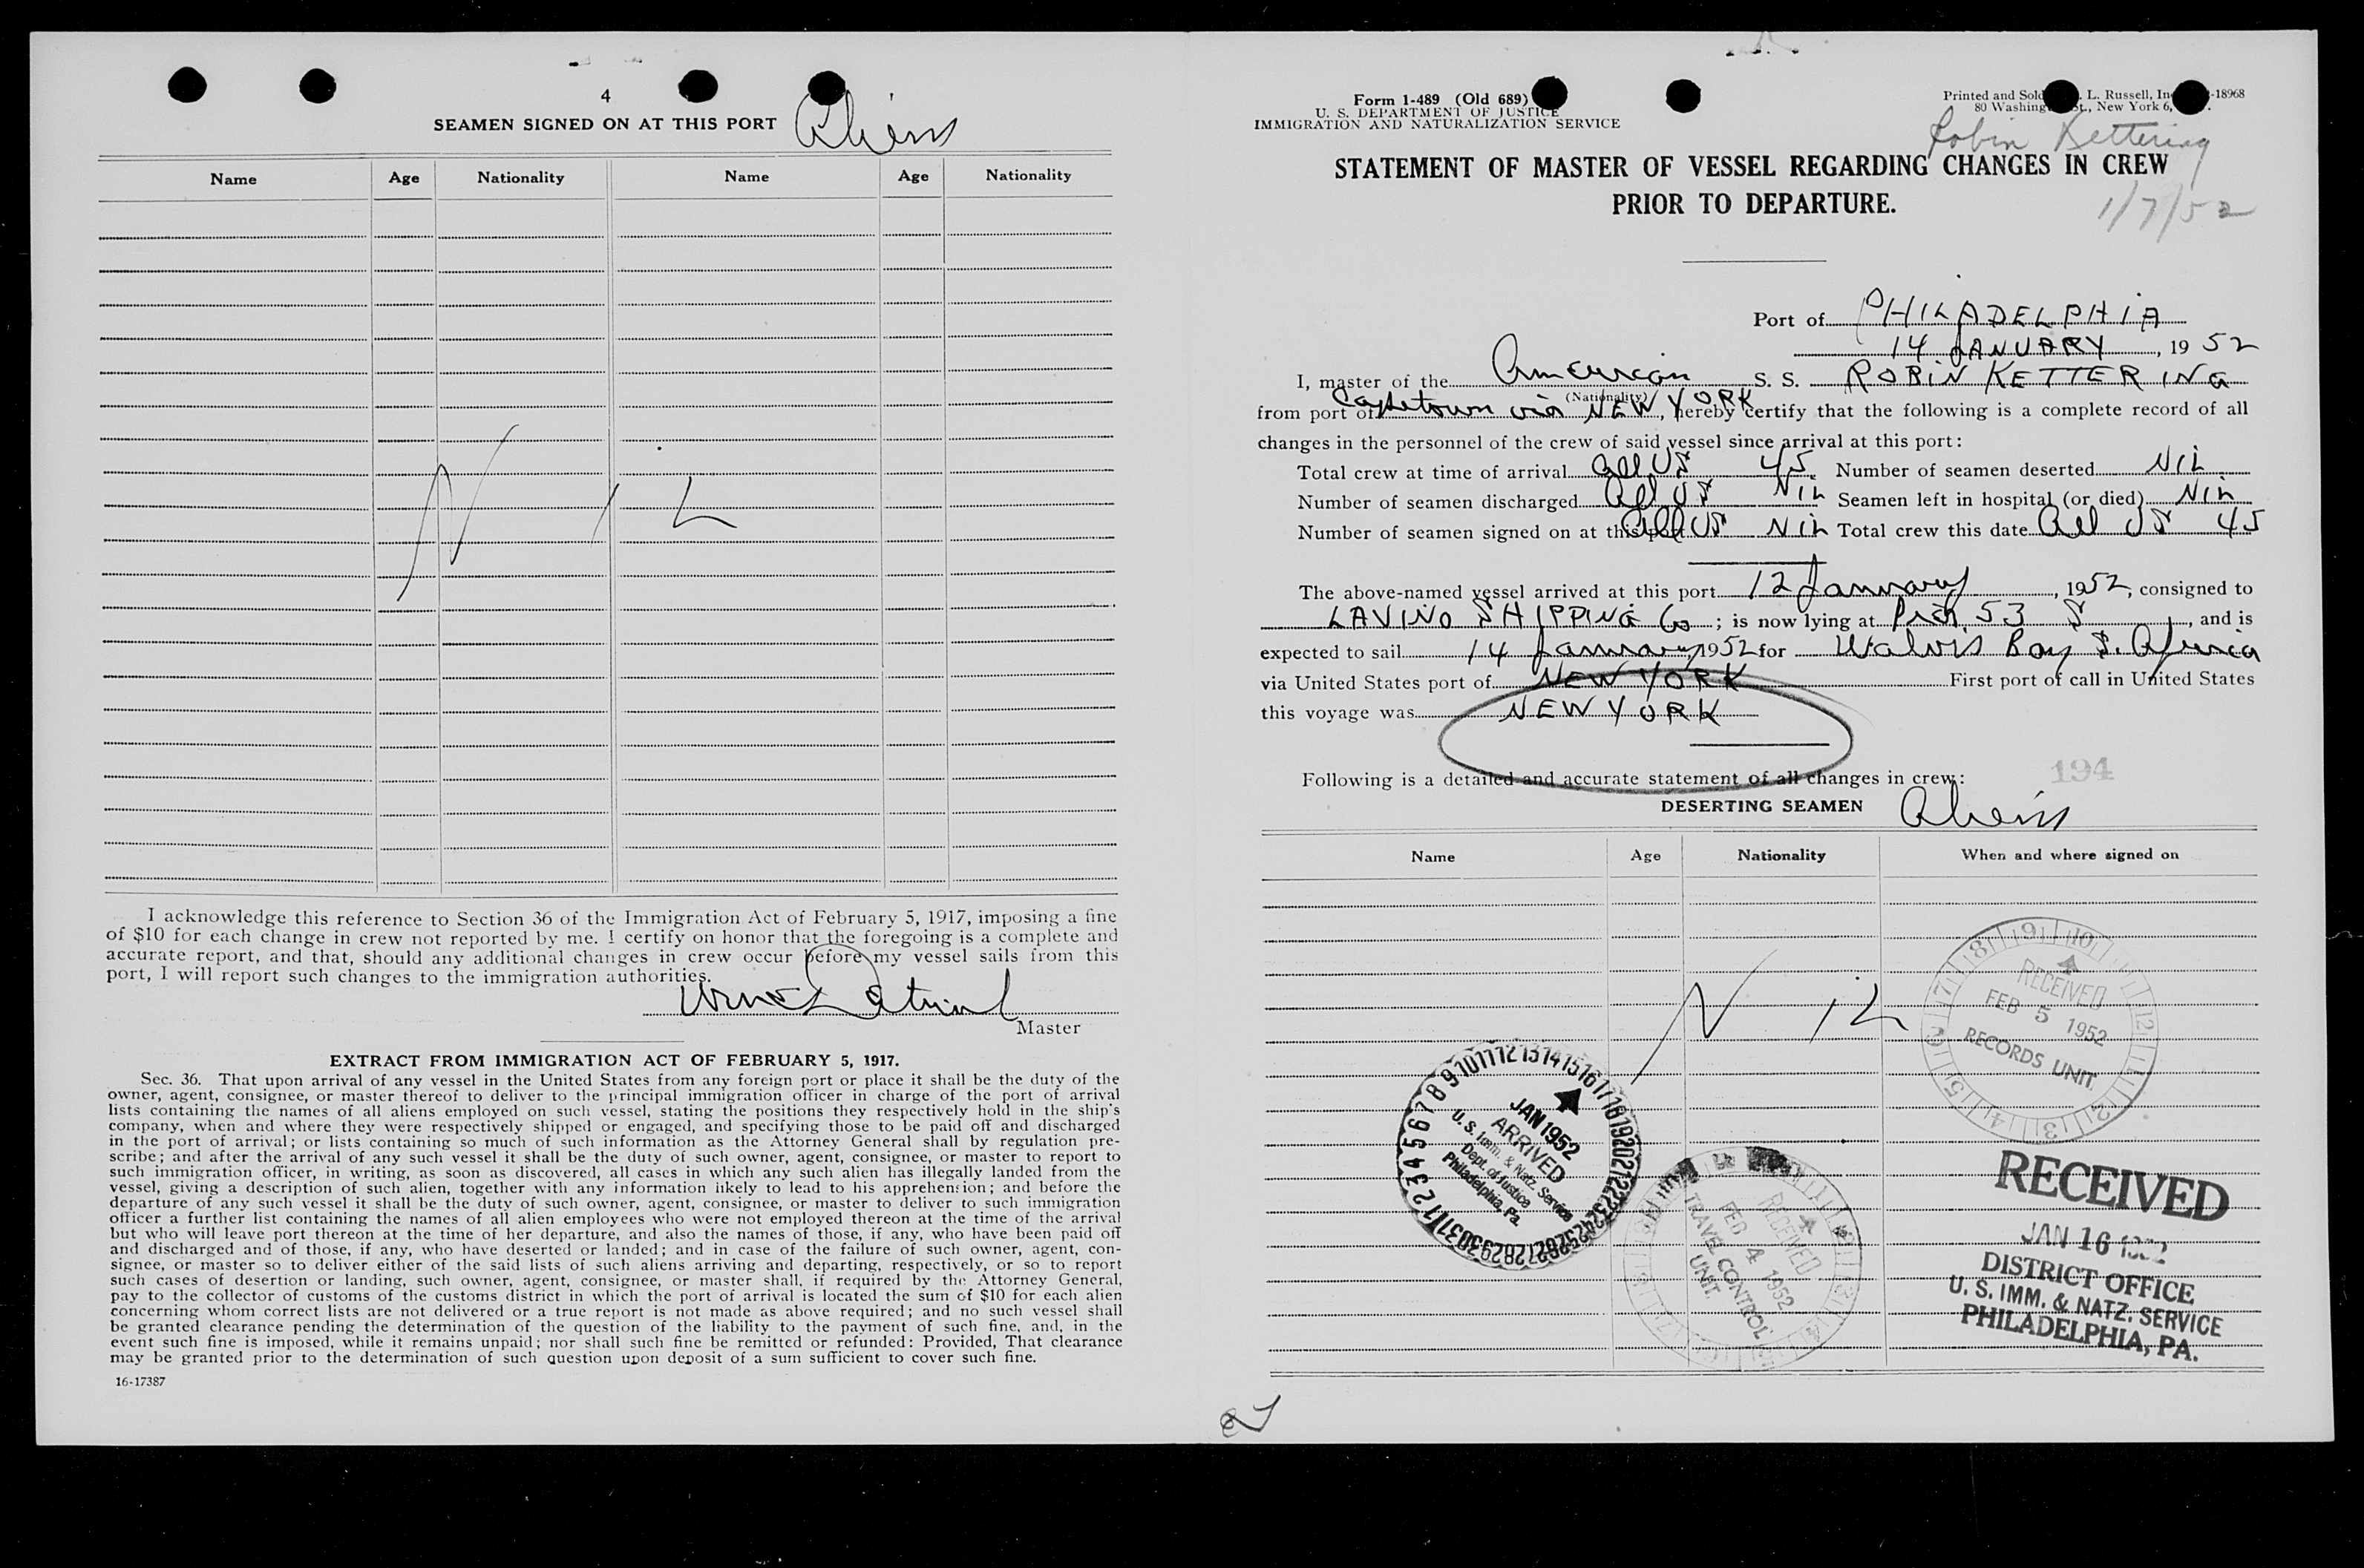 4
SEAMEN SIGNED ON AT THIS PORT Aliens
Name Age Nationality Name Age Nationality
NIL
I acknowledge this reference to Section 36 of the Immigration Act of February 5, 1917, imposing a fine
of $10 for each change in crew not reported by me. I certify on honor that the foregoing is a complete and
accurate report, and that, should any additional changes in crew occur before my vessel sails from this
port, I will report such changes to the immigration authorities.
Master
EXTRACT FROM IMMIGRATION ACT OF FEBRUARY 5, 1917.
Sec. 36. That upon arrival of any vessel in the United States from any foreign port or place it shall be the duty of the
owner, agent, consignee, or master thereof to deliver to the principal immigration officer in charge of the port of arrival
lists containing the names of all aliens employed on such vessel, stating the positions they respectively hold in the ship's
company, when and where they were respectively shipped or engaged, and specifying those to be paid off and discharged
in the port of arrival; or lists containing so much of such information as the Attorney General shall by regulation pre-
scribe; and after the arrival of any such vessel it shall be the duty of such owner, agent, consignee, or master to report to
such immigration officer, in writing, as soon as discovered, all cases in which any such alien has illegally landed from the
vessel, giving a description of such alien, together with any information likely to lead to his apprehension; and before the
departure of any such vessel it shall be the duty of such owner, agent, consignee, or master to deliver to such immigration
officer a further list containing the names of all alien employees who were not employed thereon at the time of the arrival
but who will leave port thereon at the time of her departure, and also the names of those, if any, who have been paid off
and discharged and of those, if any, who have deserted or landed; and in case of the failure of such owner, agent, con-
signee, or master so to deliver either of the said lists of such aliens arriving and departing, respectively, or so to report
such cases of desertion or landing, such owner, agent, consignee, or master shall, if required by the Attorney General,
pay to the collector of customs of the customs district in which the port of arrival is located the sum of $10 for each alien
concerning whom correct lists are not delivered or a true report is not made as above required; and no such vessel shall
be granted clearance pending the determination of the question of the liability to the payment of such fine, and, in the
event such fine is imposed, while it remains unpaid; nor shall such fine be remitted or refunded: Provided, That clearance
may be granted prior to the determination of such question upon deposit of a sum sufficient to cover such fine.
16-17387
Form 1-489 (Old 689)
U. S. DEPARTMENT OF JUSTICE
IMMIGRATION AND NATURALIZATION SERVICE
Printed and Sold L. Russell, In -18968
80 Washing St., New York 6,
Robin Kettering
STATEMENT OF MASTER OF VESSEL REGARDING CHANGES IN CREW
PRIOR TO DEPARTURE.
1/7/52
Port of PHILADELPHIA
14 JANUARY, 19 52
I, master of the American S. S. ROBIN KETTERING
(Nationality)
from port of Capetown via NEW YORK, hereby certify that the following is a complete record of all
changes in the personnel of the crew of said vessel since arrival at this port:
Total crew at time of arrival All US 45 Number of seamen deserted NIL
Number of seamen discharged All US NIL Seamen left in hospital (or died) NIL
Number of seamen signed on at this port All US NIL Total crew this date All US 45
The above-named vessel arrived at this port 12 January, 1952, consigned to
LAVINO SHIPPING Co; is now lying at Pier 53 S, and is
expected to sail 14 January 1952 for Walvis Bay S. Africa
via United States port of NEW YORK First port of call in United States
this voyage was NEW YORK
194
Following is a detailed and accurate statement of all changes in crew:
DESERTING SEAMEN Aliens
Name Age Nationality When and where signed on
NIL
RECEIVED
FEB 5 1952
RECORDS UNIT
1 2 3 4 5 6 7 8 9 10 11 12 13 14 15 16 17 18 19 20 21 22 23 24 25 26 27 28 29 30 31
JAN 1952
ARRIVED
U. S. Imm. & Natz. Service
Dept. of Justice
Philadelphia, Pa.
RECEIVED
FEB 4 1952
TRAVEL CONTROL
UNIT
RECEIVED
JAN 16 1952
DISTRICT OFFICE
U. S. IMM. & NATZ. SERVICE
PHILADELPHIA, PA.